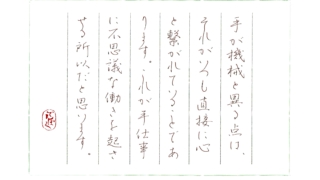 手が機械と異る点は、
それがいつも直接に心
と繋がれていることであ
ります。これが手仕事
に不思議な働きを起さ
せる所以だと思います。